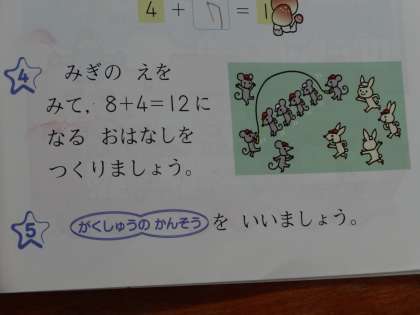 4 + 7 = 1
4 みぎの えを
みて、8+4=12に
なる おはなしを
つくりましょう。
5 がくしゅうの かんそう を いいましょう。